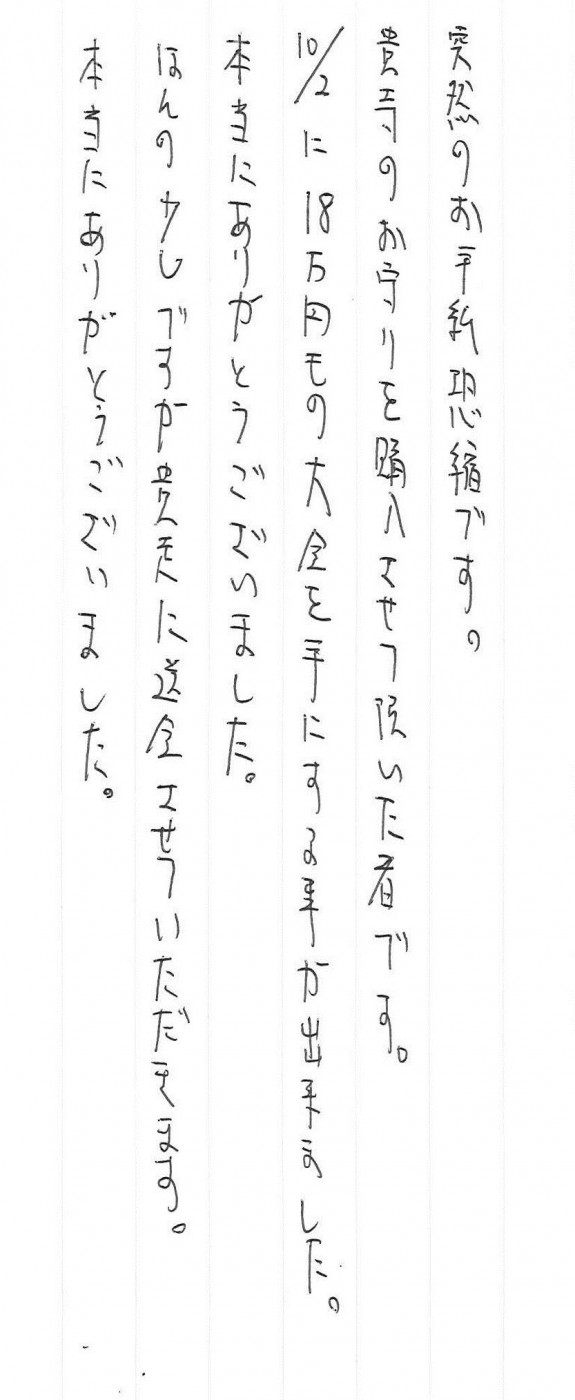 突然のお手紙恐縮です。
貴寺のお守りを購入させて頂いた者です。
10/2に18万円もの大金を手にする事が出来ました。
本当にありがとうございました。
ほんの少しですが貴天に送金させていただきます。
本当にありがとうございました。